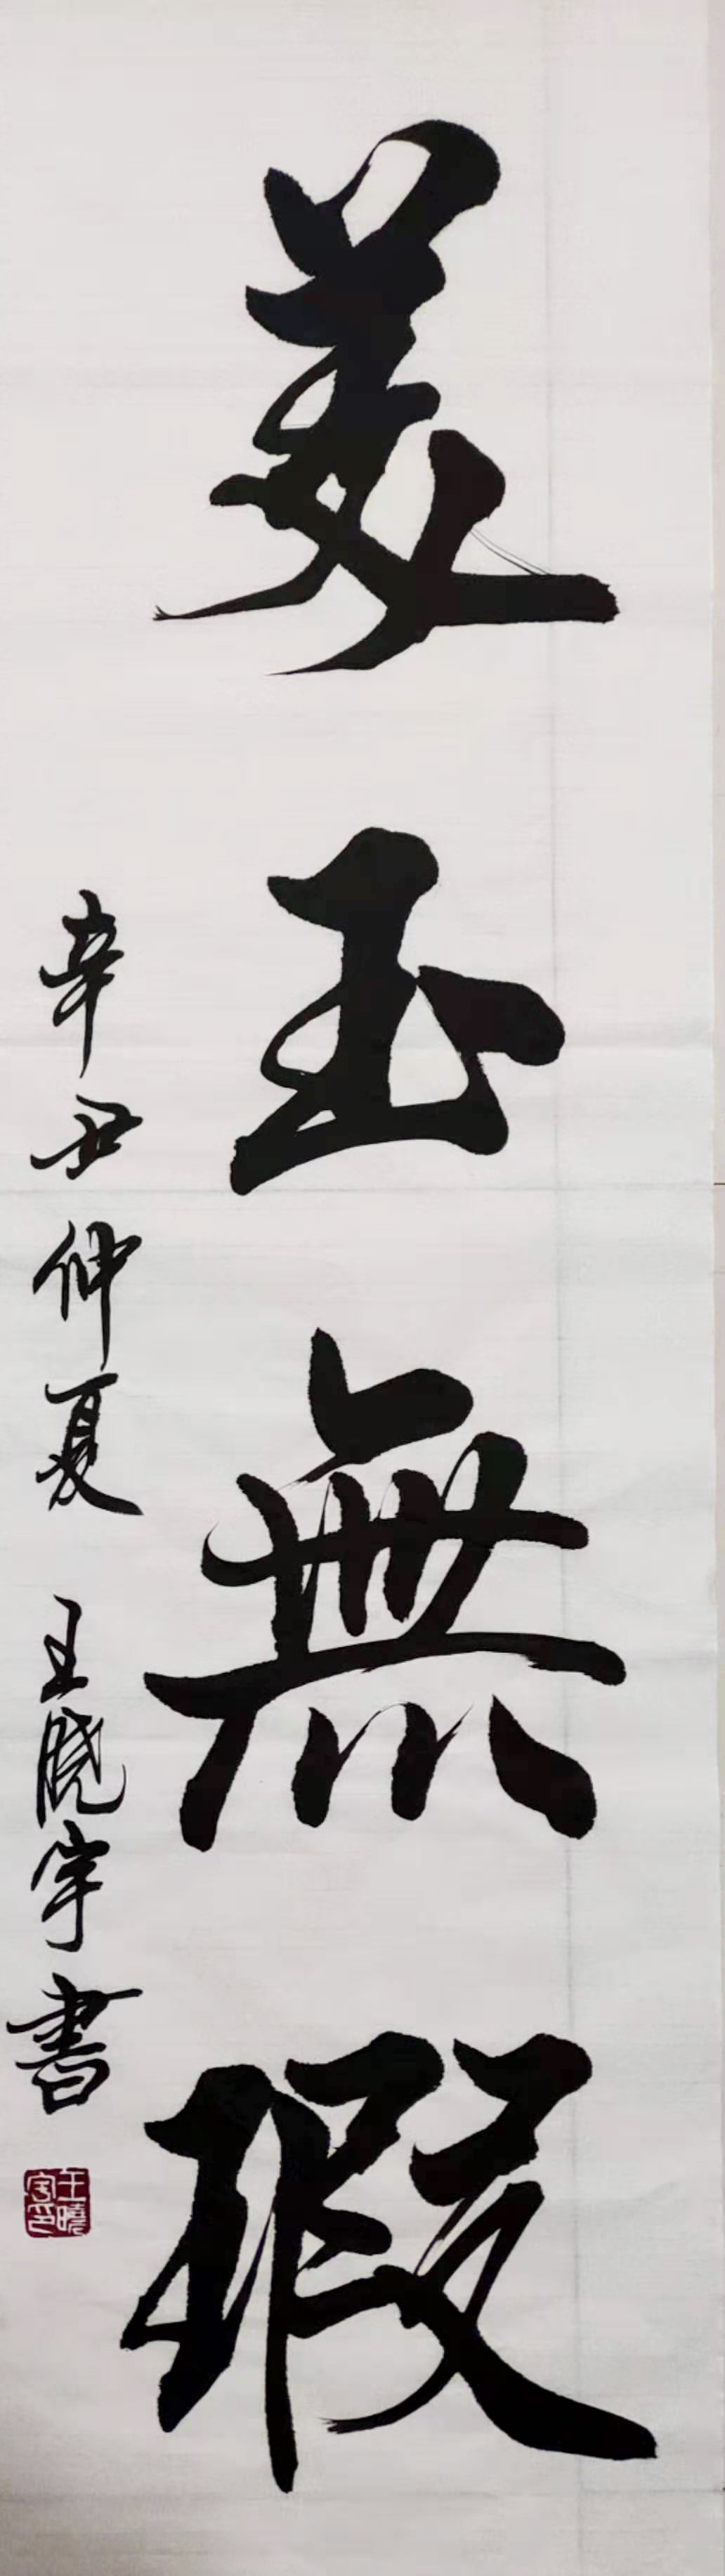 美玉無瑕
辛丑仲夏 王曉宇書
王曉宇印